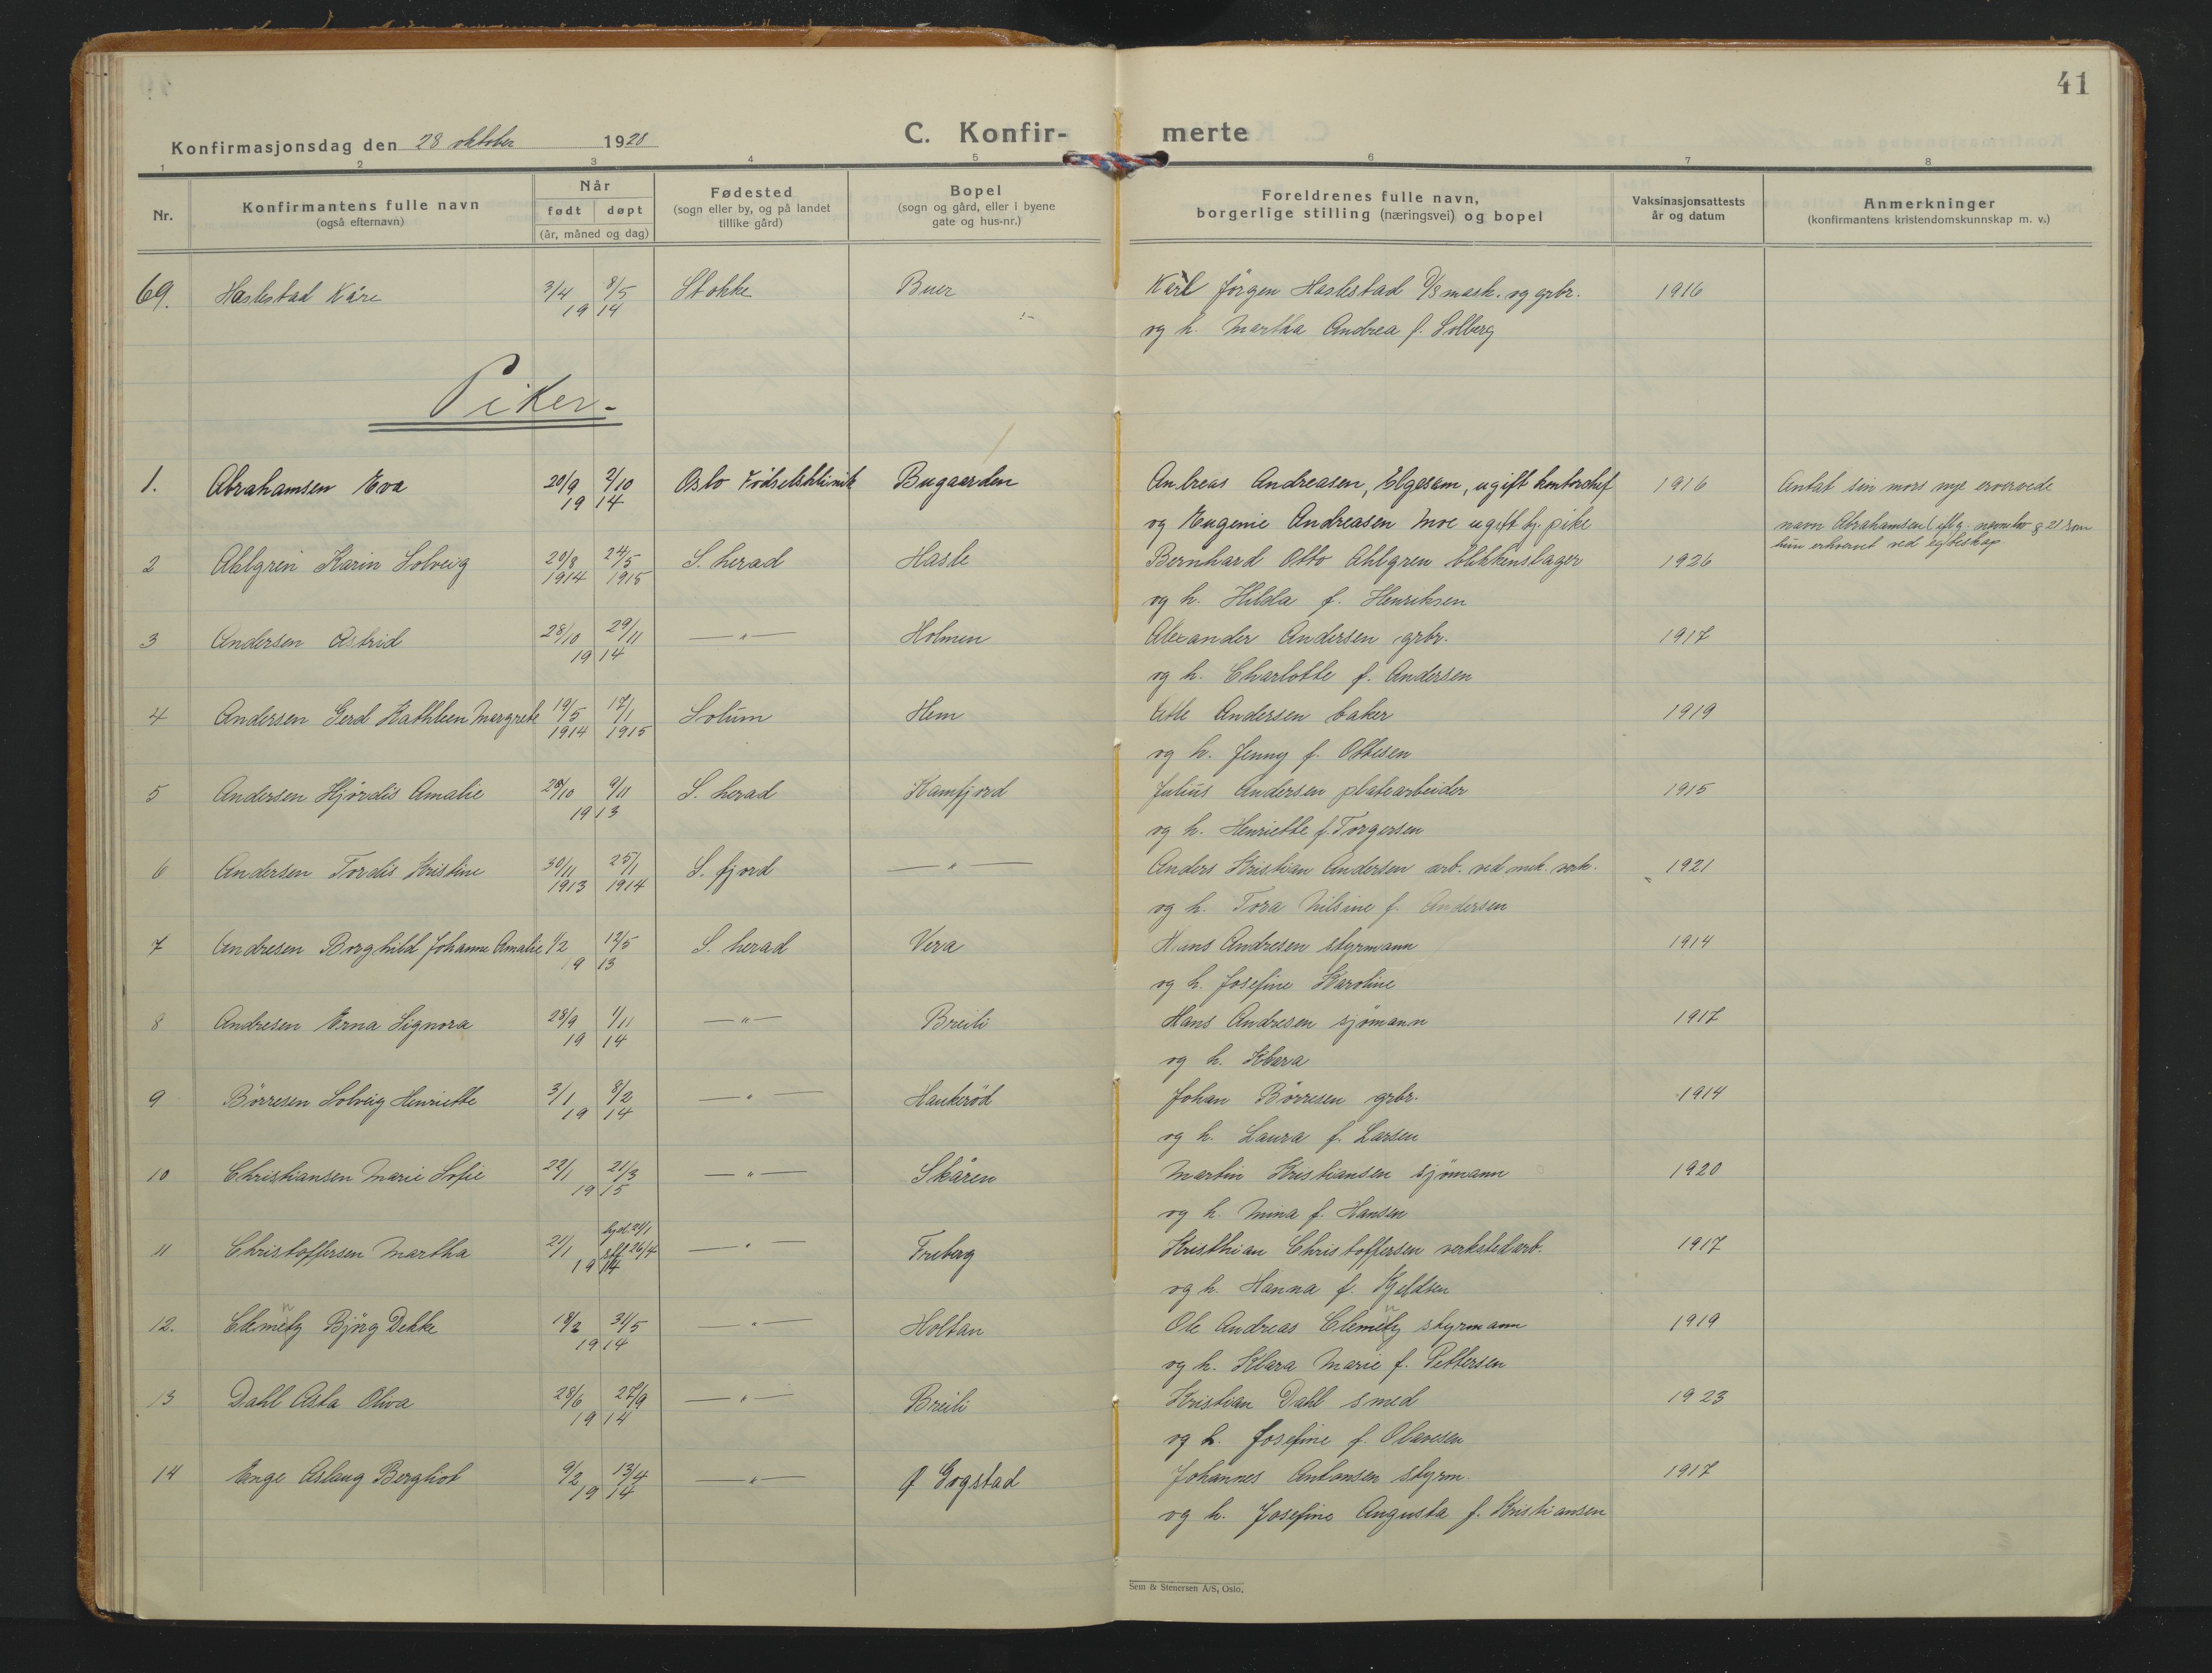 41
Konfirmasjonsdag den 28 oktober 1928
C. Konfir- merte
1 2 3 4 5 6 7 8
Nr. Konfirmantens fulle navn (også efternavn) Når født døpt (år, måned og dag) Fødested (sogn eller by, og på landet tillike gård) Bopel (sogn og gård, eller i byene gate og hus-nr.) Foreldrenes fulle navn, borgerlige stilling (næringsvei) og bopel Vaksinasjonsattests år og datum Anmerkninger (konfirmantens kristendomskunnskap m. v.)
69. Haslestad Kåre 3/4 8/5 1914 Stokke Buer Karl Jörgen Haslestad mask. og grbr. 1916
og h. Martha Andrea f. Solberg
Piker-
1. Abrahamsen Eva 20/9 2/10 1914 Oslo Födselsklinik Bugaarden Andreas Andreasen, Elgesem, ugift kontorchef 1916 Antat sin mors nye ervervede
og Eugenie Andreasen Moe ugift tj. pike navn Abrahamsen (iflg. navnlov § 21 som
hun erhvervet ved egteskap.
2 Ahlgren Karin Solveig 20/8 1914 24/5 1915 S. herad Hasle Bernhard Otto Ahlgren blikkenslager 1926
og h. Hilda f. Henriksen
3 Andersen Astrid 28/10 29/11 1914 — " — Holmen Alexander Andersen grbr. 1917
og h. Charlotte f. Andersen
4 Andersen Gerd Kathleen Margrete 19/5 1914 17/1 1915 Solum Hem Atle Andersen baker 1919
og h. Jenny f. Ottesen
5 Andersen Hjördis Amalie 28/10 9/11 1913 S. herad Kamfjord Julius Andersen platearbeider 1915
og h. Henriette f. Torgersen
6 Andersen Tordis Kristine 30/11 1913 25/1 1914 S. fjord — " — Anders Kristian Andersen arb. ved mek. verk. 1921
og h. Tora Nilsine f. Andersen
7 Andresen Borghild Johanne Amalie 1/2 12/5 1913 S. herad Vera Hans Andresen styrmann 1914
og h. Josefine Karoline
8 Andresen Erna Signora 28/9 1/11 1914 — " — Breili Hans Andresen sjömann 1917
og h. Klara
9 Börresen Solveig Henriette 3/1 8/2 1914 — " — Haukeröd Johan Börresen grbr. 1914
og h. Laura f. Larsen
10 Christiansen Marie Sofie 22/1 21/3 1915 — " — Skåren Martin Kristiansen sjömann 1920
og h. Mina f. Hansen
11 Christoffersen Martha 21/1 hjd. 21/1 stf. 26/4 1914 — " — Freberg Kristhian Christoffersen verkstedarb. 1917
og h. Hanna f. Kjeldsen
12. Clemetz Bjørg Dekke 18/2 31/5 1914 — " — Holtan Ole Andreas Clemetz styrmann 1919
og h. Klara Marie f. Pettersen
13 Dahl Asta Oliva 28/6 27/9 1914 — " — Breili Kristian Dahl smed 1923
og h. Josefine f. Olavesen
14 Enge Aslaug Bergliot 9/2 13/4 1914 — " — Ø Gogstad Johannes Antonsen styrm. 1917
og h. Josefine Augusta f. Kristiansen
Sem & Stenersen A/S, Oslo.